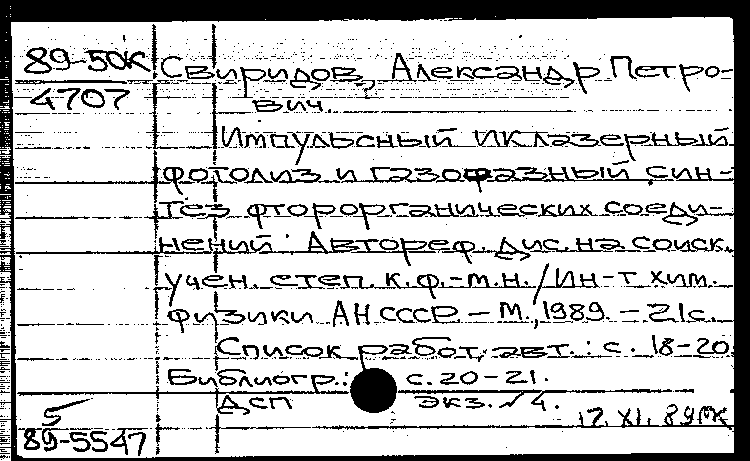 89-50К
4707
Свиридов, Александр Петро-
вич.
Импульсный ИК лазерный
фотолиз и газофазный син-
тез фторорганических соеди-
нений : Автореф. дис. на соиск.
учен. степ. к. ф.-м.н. / Ин-т хим.
физики АН СССР. - М., 1989. - 21с.
Список работ. авт.: с. 18-20.
Библиогр.: с. 20-21.
ДСП экз. √ 4.
17. XI. 89
5
89-5547